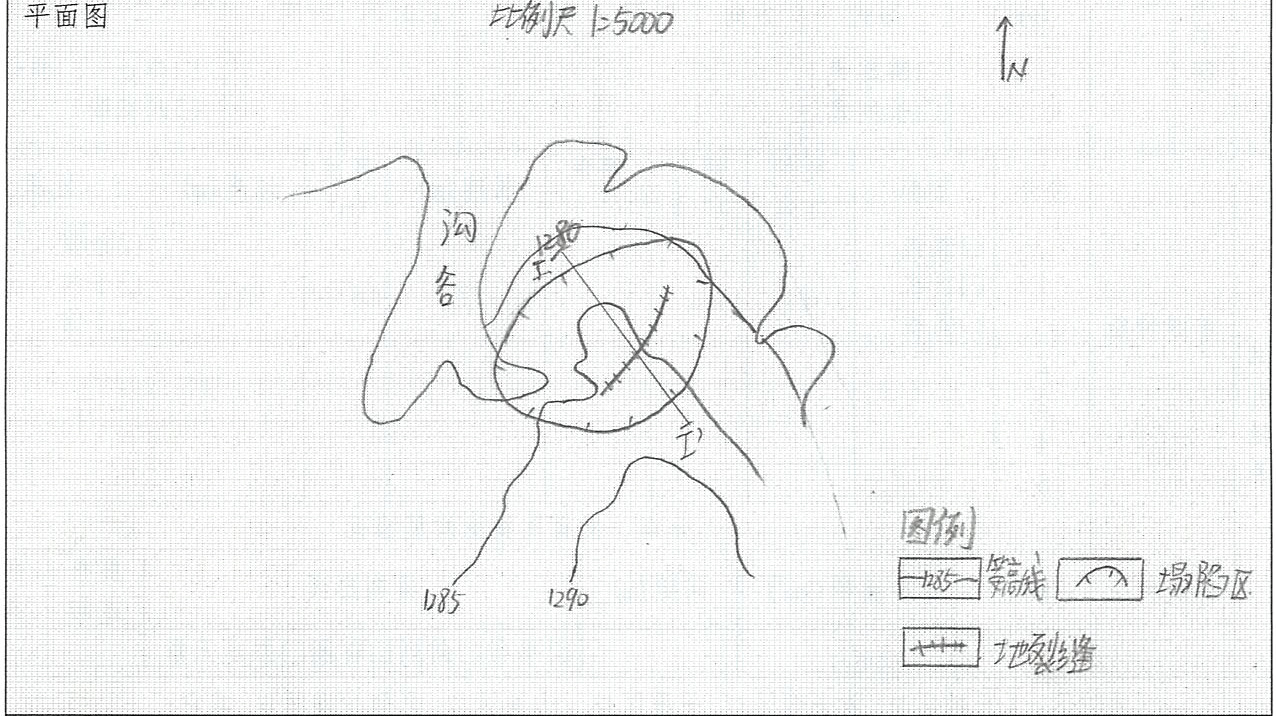 平面图
比例尺 1:5000
N
沟
谷
1280
I
I'
1285
1290
图例
1285 等高线
塌陷区
地裂缝